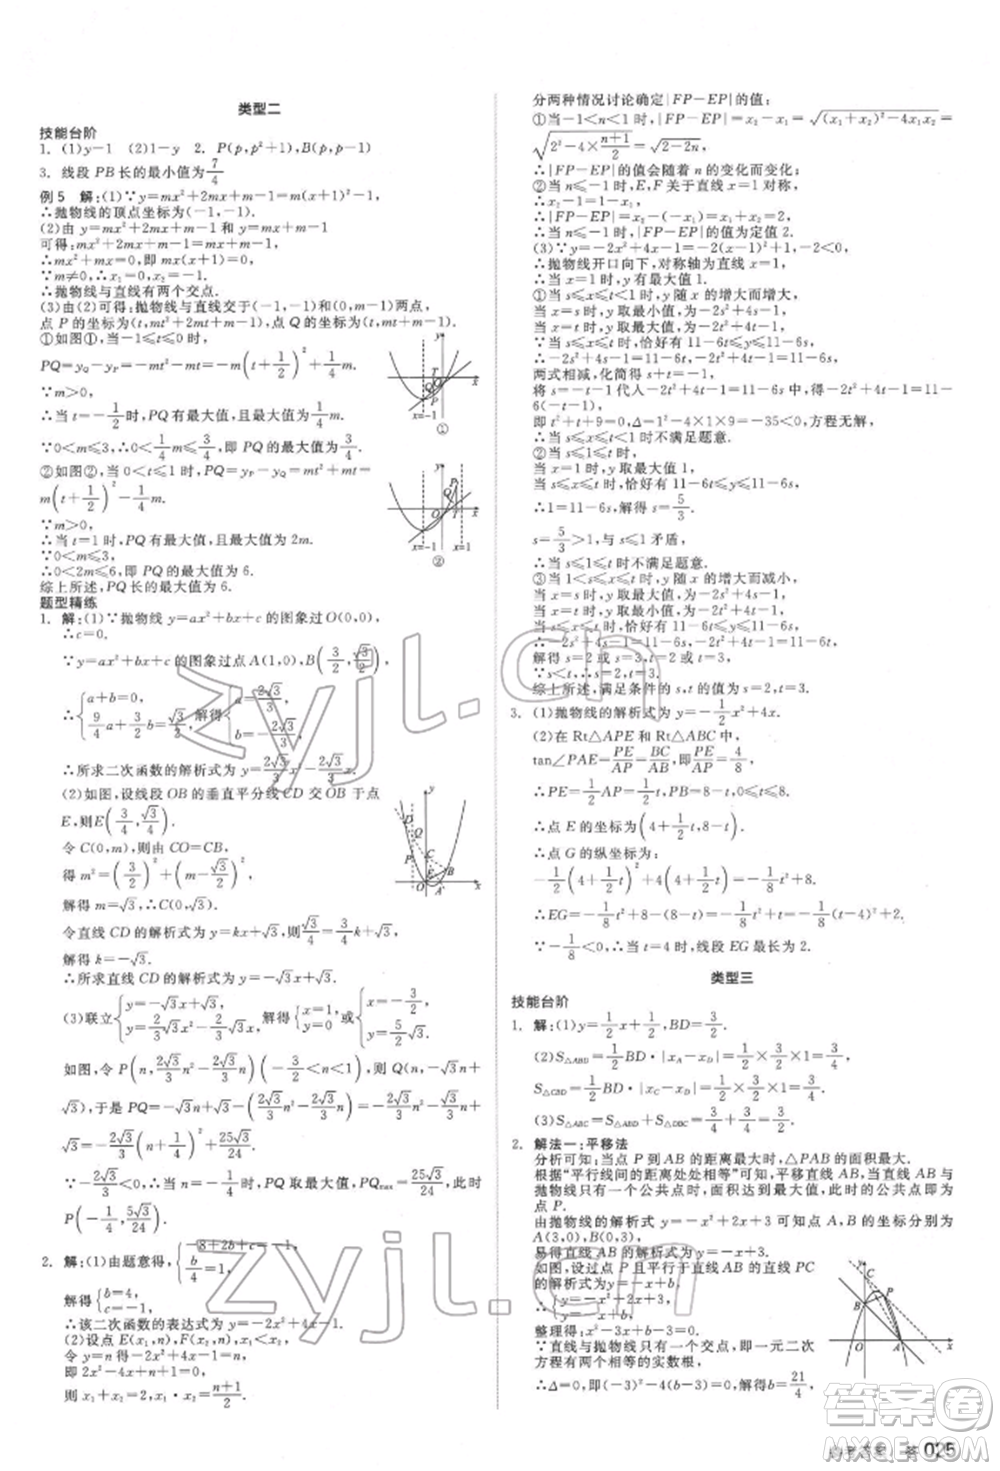 类型二
技能台阶
1. (1)y-1 (2)1-y 2. P(p,p²+1),B(p,1)
3. 线段 PB 长的最小值为7/4
例5 解:(1)∵y=mx²+2mx+m-1,
∴抛物线的顶点坐标为(-1,-1).
(2)由 y=mx²+2mx+m-1 和 y=mx+m-1
可得:mx²+2mx+m-1=mx+m-1,
∴mx²+mx=0,即 mx(x+1)=0.
∵m≠0,∴x₁=0,x₂=-1.
∴抛物线与直线有两个交点.
(3)由(2)可得:抛物线与直线交于(-1,-1)和(0,m-1)两点,
点 P 的坐标为(t,mt²+2mt+m-1),点 Q 的坐标为(t,mt+m-1).
①如图①,当-1≤t≤0 时,
PQ=y_Q-y_P=-mt²-mt=-m(t+1/2)²+1/4m.
∵m>0,
∴当 t=-1/2时,PQ 有最大值,且最大值为1/4m.
∵0<m≤3,∴0<1/4m≤3/4,即 PQ 的最大值为3/4.
②如图②,当 0<t≤1 时,PQ=y_P-y_Q=mt²+mt=
m(t+1/2)²-1/4m.
∵m>0,
∴当 t=1 时,PQ 有最大值,且最大值为 2m.
∵0<m≤3,
∴0<2m≤6,即 PQ 的最大值为 6.
综上所述,PQ 的最大值为 6.
题型精练
1. 解:(1)∵抛物线 y=ax²+bx+c 的图象过 O(0,0),
∴c=0.
∵y=ax²+bx+c 的图象过点 A(1,0),B(3/2,√3/2),
∴{a+b=0, 9/4a+3/2b=√3/2, 解得{a=2√3/3, b=-2√3/3.
∴所求二次函数的解析式为 y=2√3/3x²-2√3/3x.
(2)如图,设线段 OB 的垂直平分线 CD 交 OB 于点
E,则E(3/4,√3/4).
令 C(0,m),则由 CO=CB,
得 m²=(3/2)²+(√3/2-m)².
解得 m=√3,∴C(0,√3).
令直线 CD 的解析式为 y=kx+√3,则√3/4=3/4k+√3,
解得 k=-√3.
∴所求直线 CD 的解析式为 y=-√3x+√3.
(3)联立{y=-√3x+√3, y=2√3/3x²-2√3/3x, 解得{x=1, y=0 或{x=-3/2, y=5/2√3.
如图,令 P(n,2√3/3n²-2√3/3n)(-3/2<n<1),则 Q(n,-√3n+
√3),于是 PQ=-√3n+√3-(2√3/3n²-2√3/3n)=-2√3/3n²-√3/3n+√3
=-2√3/3(n+1/4)²+25√3/24.
∵-2√3/3<0,∴当 n=-1/4时,PQ 取最大值,PQmax=25√3/24,此时
P(-1/4,5√3/24).
2. 解:(1)由题意得,{-8+2b+c=-1, b/4=1,
解得{b=4, c=-1.
∴该二次函数的解析式为 y=-2x²+4x-1.
(2)设点 E(x₁,n),F(x₂,n),x₁<x₂,
令 y=n,则-2x²+4x-1=n,
即 2x²-4x+n+1=0,
则 x₁+x₂=2,x₁x₂=n+1/2.
分两种情况讨论确定|FP-EP|的值:
①当-1<n<1 时,|FP-EP|=x₂-x₁=√(x₁+x₂)²-4x₁x₂=
√2²-4×n+1/2=√2-2n,
∴|FP-EP|的值会随着 n 的变化而变化;
②当 n≤-1 时,E,F 关于直线 x=1 对称,
∴x₂-1=1-x₁,
∴|FP-EP|=x₂+x₁=2,
∴当 n≤-1 时,|FP-EP|的值为定值 2.
(3)∵y=-2x²+4x-1=-2(x-1)²+1,-2<0,
∴抛物线开口向下,对称轴为直线 x=1,
∴y 有最大值 1.
①当 s≤x≤t≤1 时,y 随 x 的增大而增大,
当 x=s 时,y 取最小值,为-2s²+4s-1=11-6t,
当 x=t 时,y 取最大值,为-2t²+4t-1=11-6s,
两式相减,化简得 s=t-1.
将 s=t-1 代入-2t²+4t-1=11-6s,得-2t²+4t-1=11-
6(t-1).
即 t²+t+9=0,Δ=1²-4×1×9=-35<0,方程无解.
∴当 s≤x≤t≤1 时不满足题意.
②当 s≤1≤t 时,
当 x=1 时,y 取最大值 1,
∵当 s≤x≤t 时,恰好有 11-6t≤y≤11-6s,
∴1=11-6s,解得 s=5/3.
s=5/3>1,与 s≤1 矛盾.
∴当 s≤1≤t 时不满足题意.
③当 1<s≤x≤t 时,y 随 x 的增大而减小,
∵当 s≤x≤t 时,恰好有 11-6t≤y≤11-6s,
∴-2s²+4s-1=11-6s,-2t²+4t-1=11-6t,
解得 s=2,t=3.
综上所述,满足条件的 s,t 的值为 s=2,t=3.
3. (1)抛物线的解析式为 y=-1/2x²+4x.
(2)在 Rt△APE 和 Rt△ABC 中,
tan∠PAE=PE/AP=BC/AB,即PE/AP=4/8,
∴PE=1/2AP=1/2t,0≤t≤8.
∴点 E 的坐标为(4+1/2t,8-t).
∴点 G 的纵坐标为
-1/2(4+1/2t)²+4(4+1/2t)=-1/8t²+8.
∴EG=-1/8t²+8-(8-t)=-1/8t²+t=-1/8(t-4)²+2.
∵-1/8<0,∴当 t=4 时,线段 EG 最长为 2.
类型三
技能台阶
1. 解:(1)y=1/2x+1/2,BD=3/2.
(2)S△ABD=1/2BD·|x_A-x_D|=1/2×3/2×1=3/4,
S△CBD=1/2BD·|x_C-x_D|=1/2×3/2×2=3/2.
2. 解法一:平移法
分析可知:当点 P 到 AB 的距离最大时,△PAB 的面积最大.
根据“平行线间的距离处处相等”可知,平移直线 AB,当 AB 与
抛物线只有一个公共点时,面积达到最大,此时的公共点即为
点 P.
由抛物线的解析式为 y=-x²+2x+3可知点 A,B 的坐标分别为
如图,设过点 P 且平行于直线 AB 的直线 PC
整理得 x²-3x+b-3=0.
∵直线与抛物线只有一个交点,即一元二次
方程有两个相等的实数根,
∴Δ=0,即(-3)²-4(b-3)=0,解得b=21/4,
zyjl.cn
zyjl.cn
答案圈
MXQE.COM
参考答案 答 025